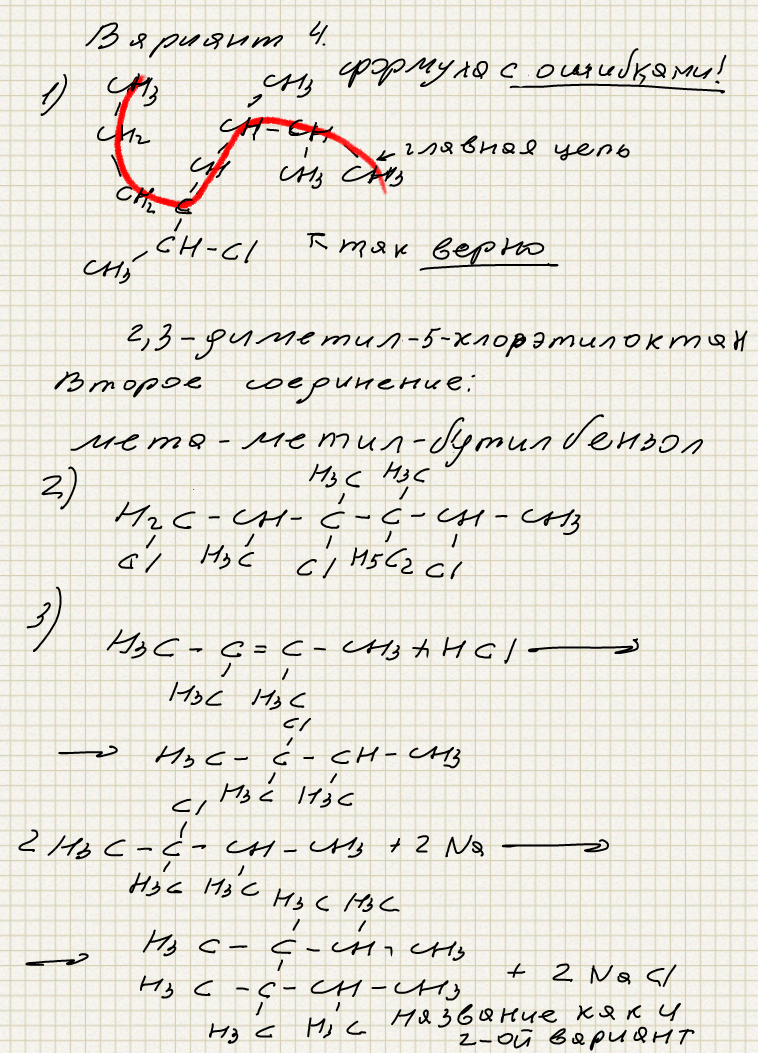 Вариант 4.
формула с ошибками!
1) CH3 CH3
CH2 CH-CH
главная цепь
CH CH3 CH3
CH2 C
CH-Cl
CH3
так верно
2,3-диметил-5-хлорэтилоктан
Второе соединение:
мета-метил-бутилбензол
2) H3C H3C
H2C - CH - C - C - CH - CH3
Cl H3C Cl H5C2 Cl
3)
H3C - C = C - CH3 + HCl ⟶
H3C H3C
Cl
⟶ H3C - C - CH - CH3
H3C H3C
Cl
2 H3C - C - CH - CH3 + 2 Na ⟶
H3C H3C
H3C H3C
⟶ H3C - C - CH - CH3
H3C - C - CH - CH3 + 2 NaCl
H3C H3C
название как и
2-ой вариант